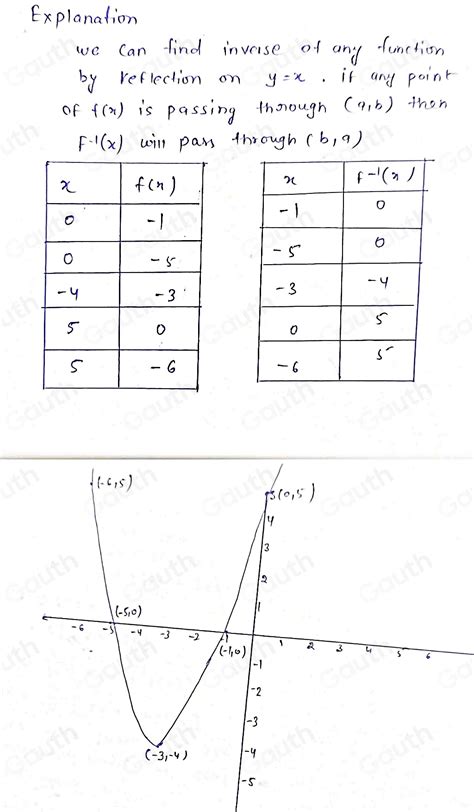 Explanation
we can find inverse of any function
by reflection on y=x . if any point
of f(x) is passing through (a,b) then
F-1(x) will pass through (b,a)
x f(x)
0 -1
0 -5
-4 -3
5 0
5 -6
x F-1(x)
-1 0
-5 0
-3 -4
0 5
-6 5
(-6,5)
5(0,5)
4
3
2
1
(-5,0)
-6 -5 -4 -3 -2 -1 1 2 3 4 5 6
(-1,0)
-1
-2
-3
(-3,-4)
-4
-5
Gauth